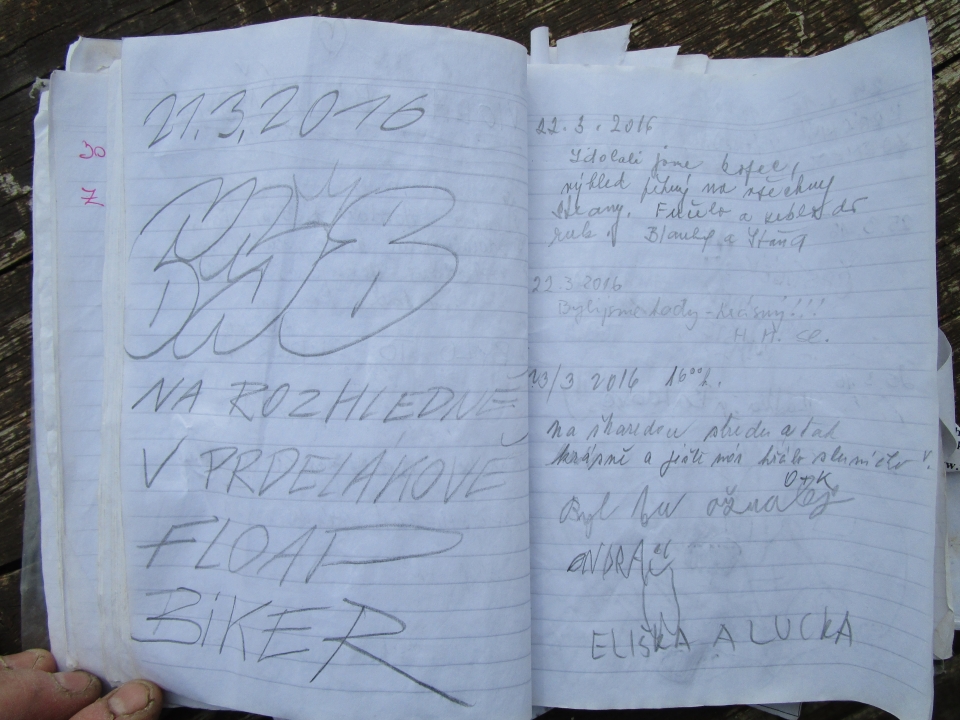 30
Z
21.3.2016
NA ROZHLEDNĚ
V PRDELÁKOVĚ
FLOAP
BIKER
22.3.2016
Zdolali jsme kopec,
výhled pěkný na všechny
strany. Fučelo a zeblo do
rukou. a
22.3.2016
Byli jsme tady - krásný!!!
H. H.
23/3 2016 16⁰⁰h.
Na škaredou středu a tak
krásně a ještě nás hřálo sluníčko
O+K
Byl tu
ONDRA
ELIŠKA A LUCKA